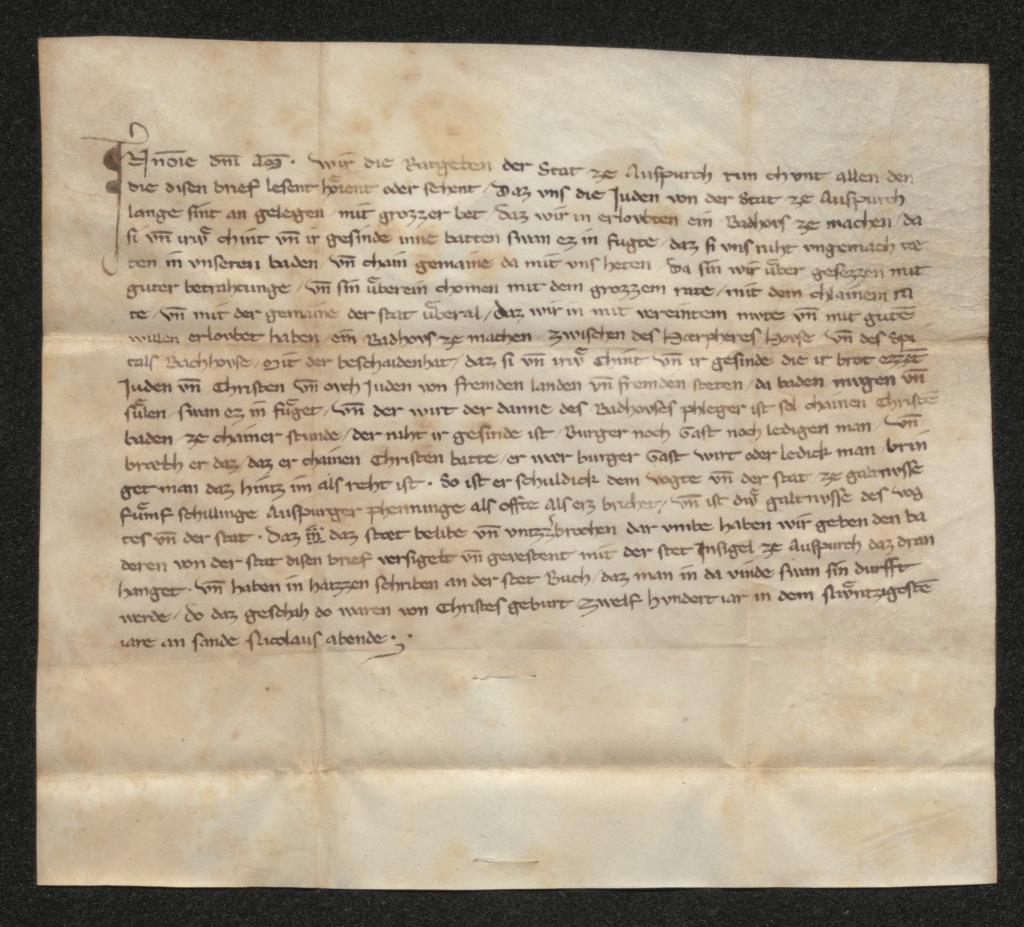 In nōie dn̄i am̄. Wir die Ratgeben der Stat ze Auspurch tun chunt allen den
die disen brief lesent hoͤrent oder sehent / Daz vns die Juden von der Stat ze Auspurch
lange sint an gelegen / mit grozzer bet / daz wir in erlovbten ein Badhovs ze machen / da
si vn̄ iriv̓ chint vn̄ ir gesinde inne batten swan ez in fugte / daz si vns niht vngemach tæ
ten in vnseren baden / vn̄ chain gemaine da mit vns heten / Da sin wir uͤber gesezzen mit
guter betrahtunge / vn̄ sin uͤberein chomen mit dem grozzem rate / mit dem chlainem ra
te / vn̄ mit der gemaine der stat uͤberal / daz wir in mit vereintem mvte vn̄ mit gute
willen erlovbet haben / ein Badhovs ze machen / zwischen des Hærpheres Hovse / vn̄ des Spi
tals Bachhovse / Mit der beschaidenhæt / daz si vn̄ irv̓ Chint vn̄ ir gesinde die ir brot ezzēt
Juden vn̄ Christen vn̄ ovch Juden von fremden landen vn̄ fremden steten / da baden mvgen vn̄
suͤlen / swan ez in fuͤget / vn̄ der wirt der danne des Badhovses phleger ist sol chainen Christē
baden / ze chainer stunde / der niht ir gesinde ist / Burger noch Gast noch ledigen man / vn̄
bræch er daz / daz er chainen Christen batte / er wær burger Gast wirt oder ledick man / brin
get man daz hintz im als reht ist . So ist er schuldick dem vogte vn̄ der stat ze galtnvsse
fuͤmf schillinge Auspurger phenninge als offte als erz brichet / vn̄ ist div̓ galtnvsse des vog
tes vn̄ der stat . Daz daz stæt belibe vn̄ vntzzebrochen dar vmbe haben wir geben den Ju
den von der stat disen brief versigelt vn̄ gevestent mit der stet Insigel ze Auspurch daz dran
hanget . vn̄ haben in haizzen schriben an der stet Buch / daz man in da vinde swan sin durfft
werde / do daz geschah do waren von Christes geburt Zwelf hvndert iar in dem niv̓ntzigostē
iare an sande Nicolaus abende . .